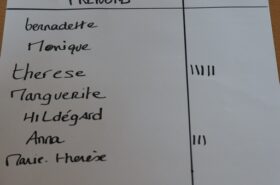 PRÉNOMS
bernadette
Monique
therese
Marguerite
HILdégard
Anna
Marie-therèse